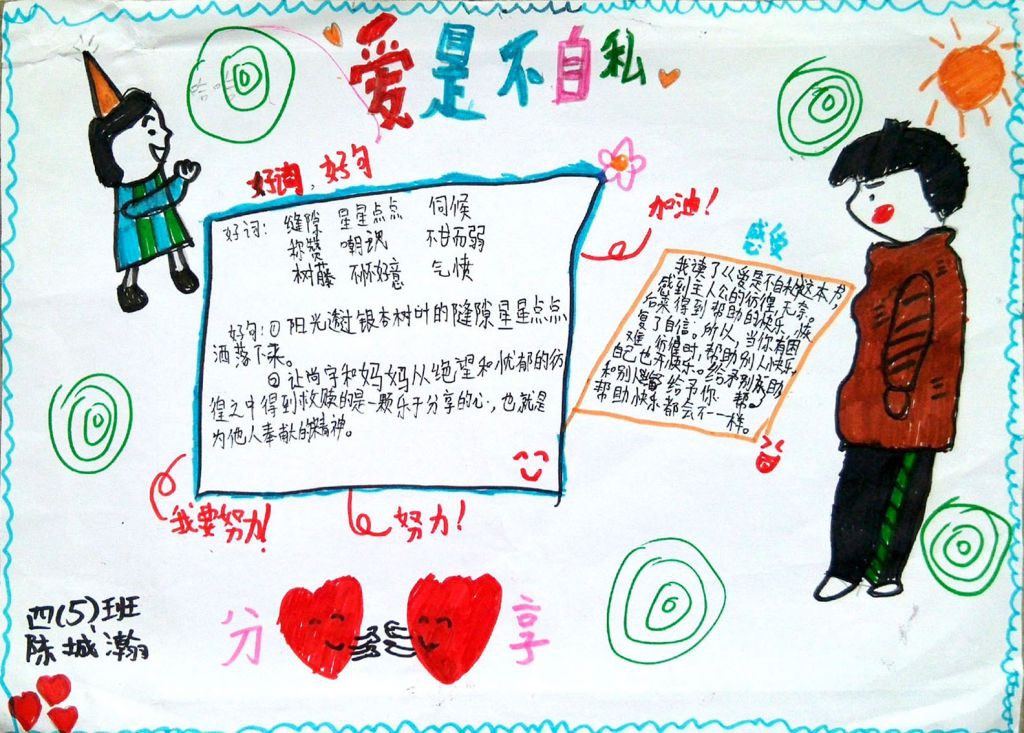 爱是不自私
好词，好句
好词：缝隙 星星点点 伺候
称赞 嘲讽 不甘而弱
树藤 不怀好意 气愤
好句：①阳光透过银杏树叶的缝隙星星点点
洒落下来。
②让尚宇和妈妈从绝望和忧郁的彷
徨之中得到救赎的是一颗乐于分享的心，也就是
为他人奉献的精神。
加油！
感受
我读了《爱是不自私》这本书，
感到主人公的彷徨，无奈。
后来得到帮助的快乐，恢
复了自信。所以，当你有困
难，彷徨时，帮助别人快乐，
自己也快乐。给予别人帮助
和别人给予你帮
帮助快乐都会不一样。
我要努力！
努力！
分享
四(5)班
陈城瀚